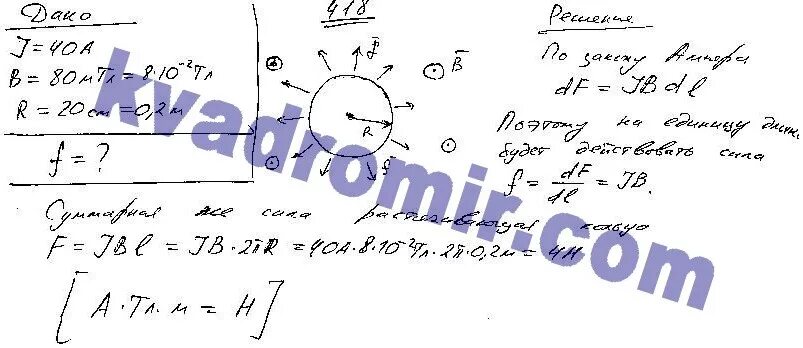 Дано
J = 40А
B = 80мТл = 8·10⁻²Тл
R = 20см = 0,2м
f = ?
418
f̄
B̄
R
f̄
Решение
По закону Ампера
dF = JBdl
Поэтому на единицу длины
будет действовать сила
f = dF/dl = JB.
Суммарная же сила растягивающая кольцо
F = JBl = JB·2πR = 40А·8·10⁻²Тл·2π·0,2м = 4Н
[А·Тл·м = Н]
kvadromir.com